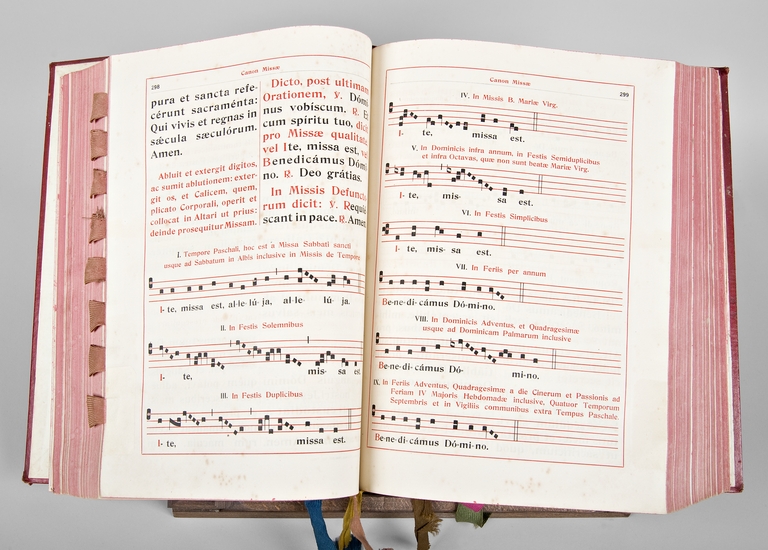 298
Canon Missæ
pura et sancta refe-
cérunt sacraménta:
Qui vivis et regnas in
sǽcula sæculórum.
Amen.
Abluit et extergit digitos,
ac sumit ablutionem: exter-
git os, et Calicem, quem,
plicato Corporali, operit et
collocat in Altari ut prius:
deinde prosequitur Missam.
Dicto, post ultimam
Orationem, ℣. Dómi
nus vobíscum, ℟. Et
cum spíritu tuo, dicit
pro Missæ qualitate
vel Ite, missa est, vel
Benedicámus Dómi
no. ℟. Deo grátias.
In Missis Defuncto
rum dicit: ℣. Requié
scant in pace. ℟. Amen
I. Tempore Paschali, hoc est a Missa Sabbati sancti
usque ad Sabbatum in Albis inclusive in Missis de Tempore
I- te, missa est, al-le- lú- ja, al-le- lú- ja.
II. In Festis Solemnibus
I- te, mis- sa est.
III. In Festis Duplicibus
I- te, missa est.
Canon Missæ
299
IV. In Missis B. Mariæ Virg.
I- te, missa est.
V. In Dominicis infra annum, in Festis Semiduplicibus
et infra Octavas, quæ non sunt beatæ Mariæ Virg.
I- te, mis- sa est.
VI. In Festis Simplicibus
I- te, mis- sa est.
VII. In Feriis per annum
Be-ne-di-cámus Dó-mi-no.
VIII. In Dominicis Adventus, et Quadragesimæ
usque ad Dominicam Palmarum inclusive
Be-ne-di-cámus Dó- mi-no.
IX. In Feriis Adventus, Quadragesimæ a die Cinerum et Passionis ad
Feriam IV Majoris Hebdomadæ inclusive, Quatuor Temporum
Septembris et in Vigiliis communibus extra Tempus Paschale
Be-ne-di-cámus Dó-mi-no.